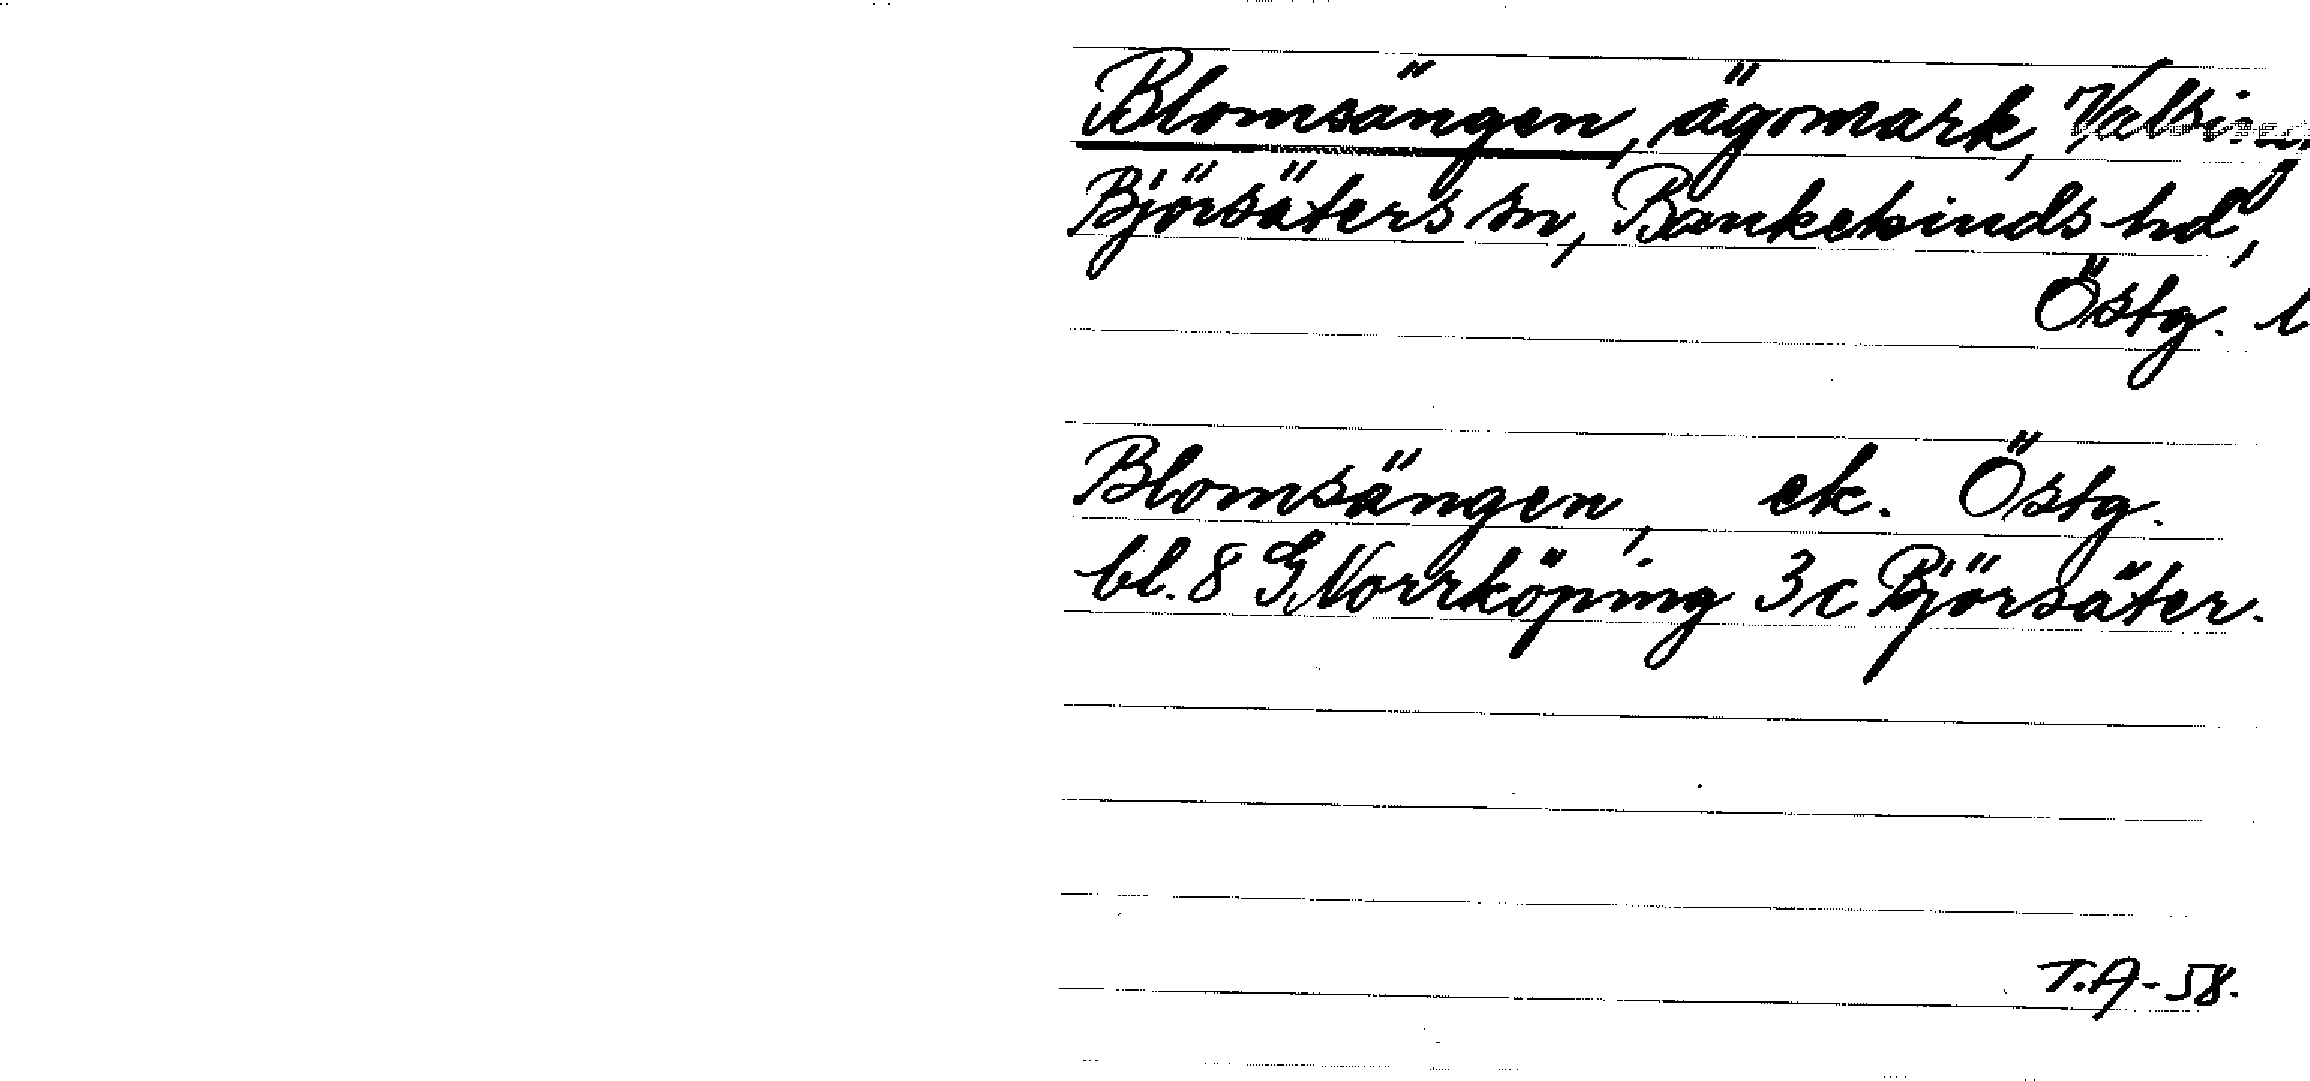 Blomsängen, ägomark,
Björsäters sn, Bankekinds hd,
Östg. l
Blomsängen, ek. Östg.
bl. 8 G Norrköping 3 c Björsäter.
T.A-58.